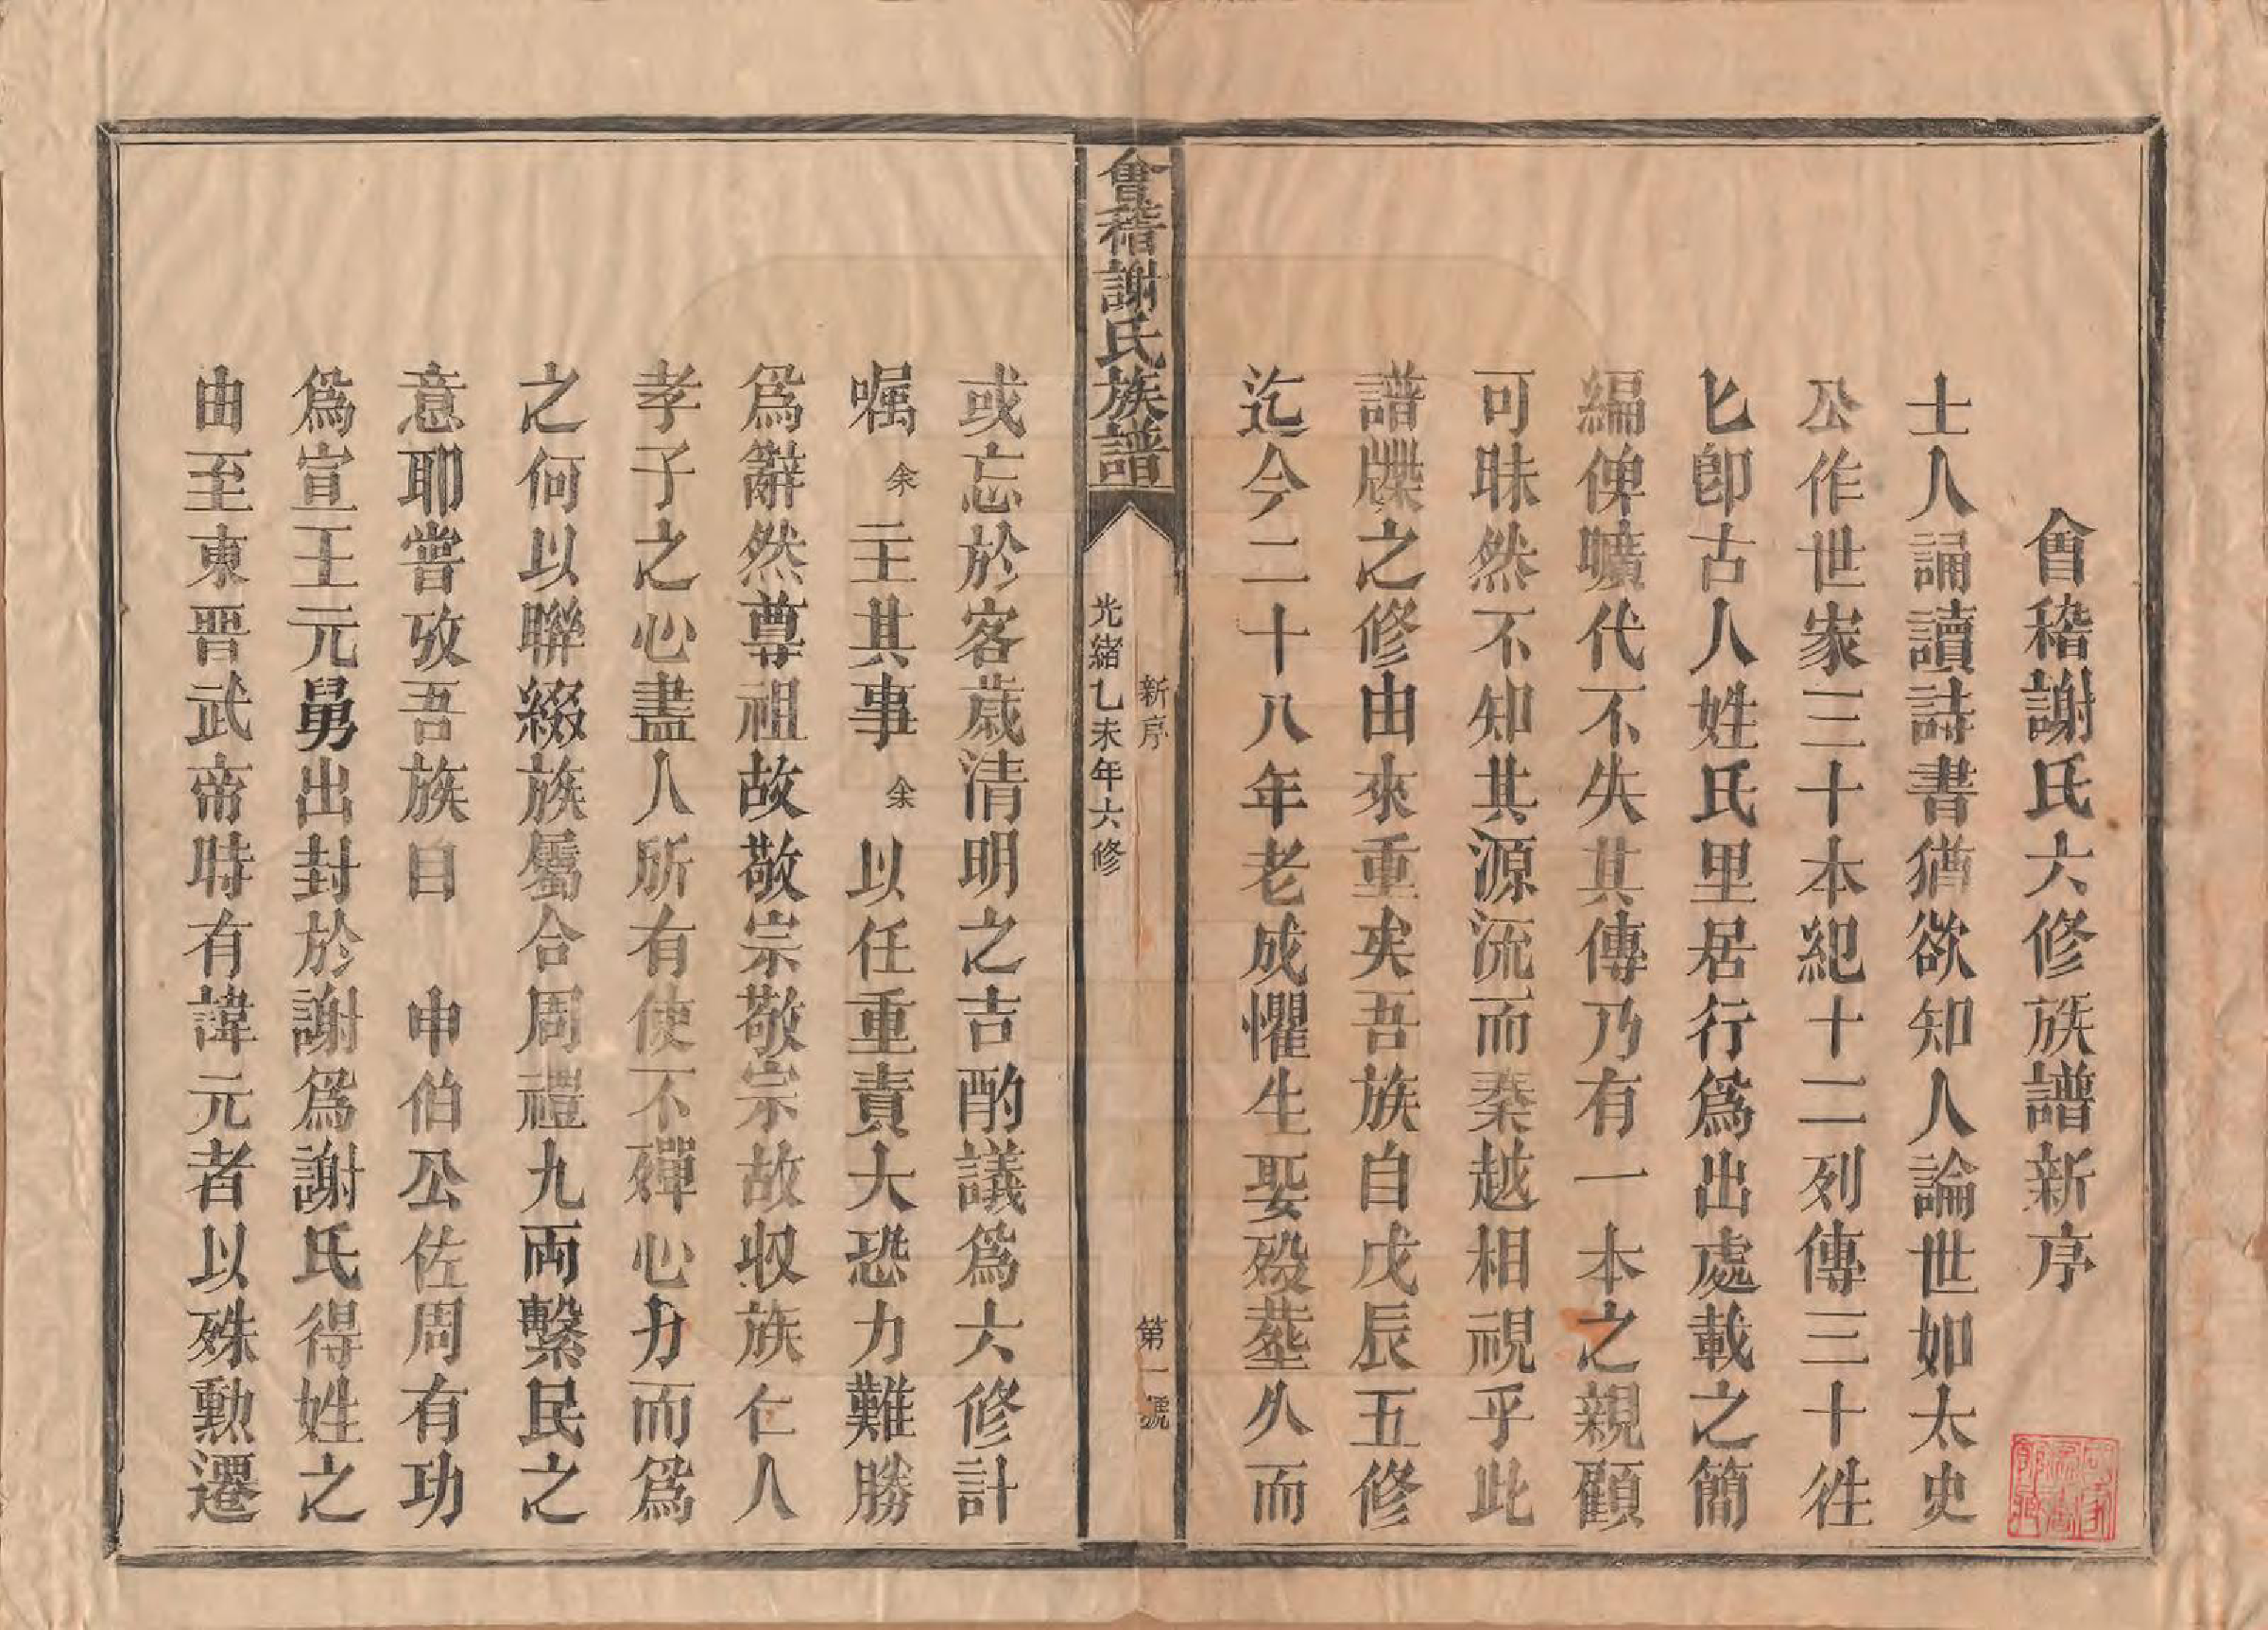 會稽謝氏六修族譜新序
士人誦讀詩書猶欲知人論世如太史
公作世家三十本紀十二列傳三十徃
匕卽古人姓氏里居行爲出處載之簡
編俾曠代不失其傳乃有一本之親顧
可昧然不知其源流而秦越相視乎此
譜牒之修由來重矣吾族自戊辰五修
迄今二十八年老成懼生娶歿塟久而
會稽謝氏族譜
新序
第一號
光緒乙未年六修
或忘於客歲清明之吉酌議爲六修計
嘱余主其事余以任重責大恐力難勝
爲辭然尊祖故敬宗敬宗故収族仁人
孝子之心盡人所有使不殫心力而爲
之何以聯綴族屬合周禮九両繫民之
意耶嘗攷吾族自 申伯公佐周有功
爲宣王元舅出封於謝爲謝氏得姓之
由至東晋武帝時有諱元者以殊勳遷